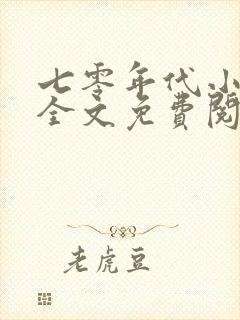 七零年代小
全文免费阅
老虎豆